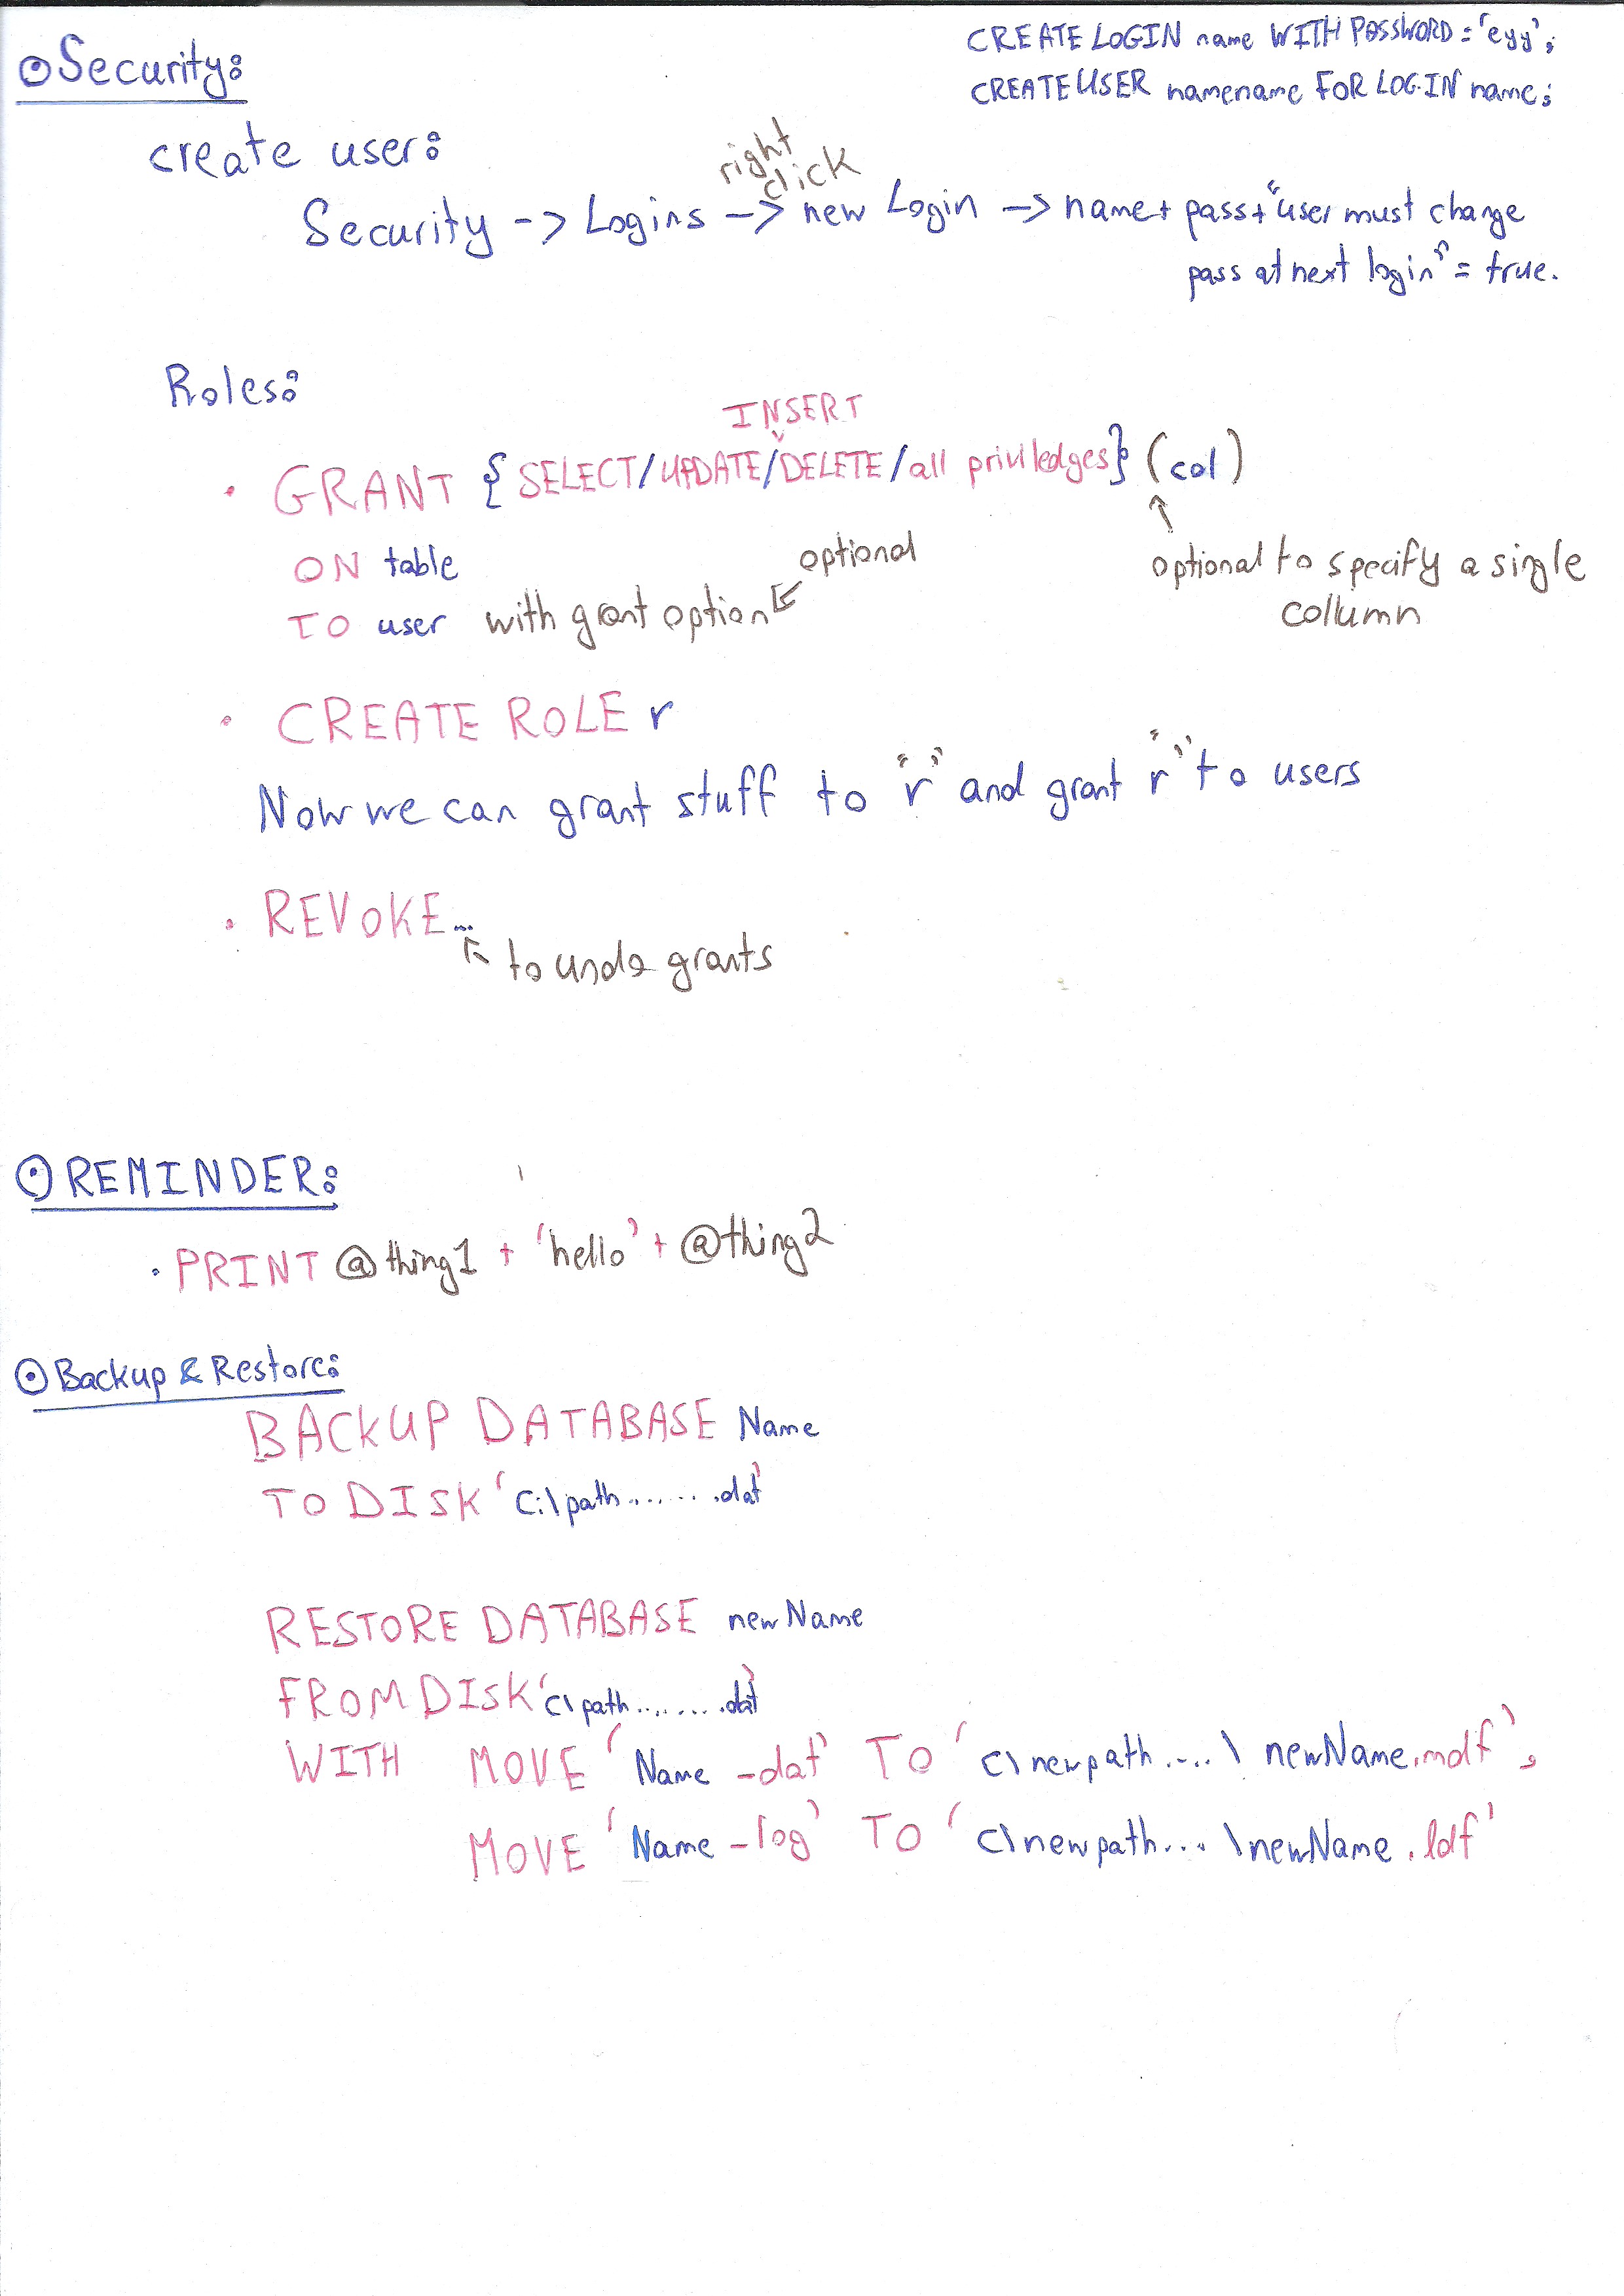 CREATE LOGIN name WITH PASSWORD = 'eyy';
CREATE USER namename FOR LOGIN name;
Security:
create user:
right
click
Security -> Logins -> new Login -> name + pass + "user must change
pass at next login" = true.
Roles:
INSERT
• GRANT { SELECT/UPDATE/DELETE/all priviledges} (col)
ON table
optional
optional to specify a single
collumn
TO user with grant option
• CREATE ROLE r
Now we can grant stuff to "r" and grant "r" to users
• REVOKE...
to undo grants
REMINDER:
• PRINT @thing1 + 'hello' + @thing2
Backup & Restore:
BACKUP DATABASE Name
TO DISK 'C:\path........dat'
RESTORE DATABASE newName
FROM DISK 'c\path.........dat'
WITH MOVE 'Name -dat' TO 'c\newpath....\ newName.mdf',
MOVE 'Name -log' TO 'c\newpath...\newName.ldf'